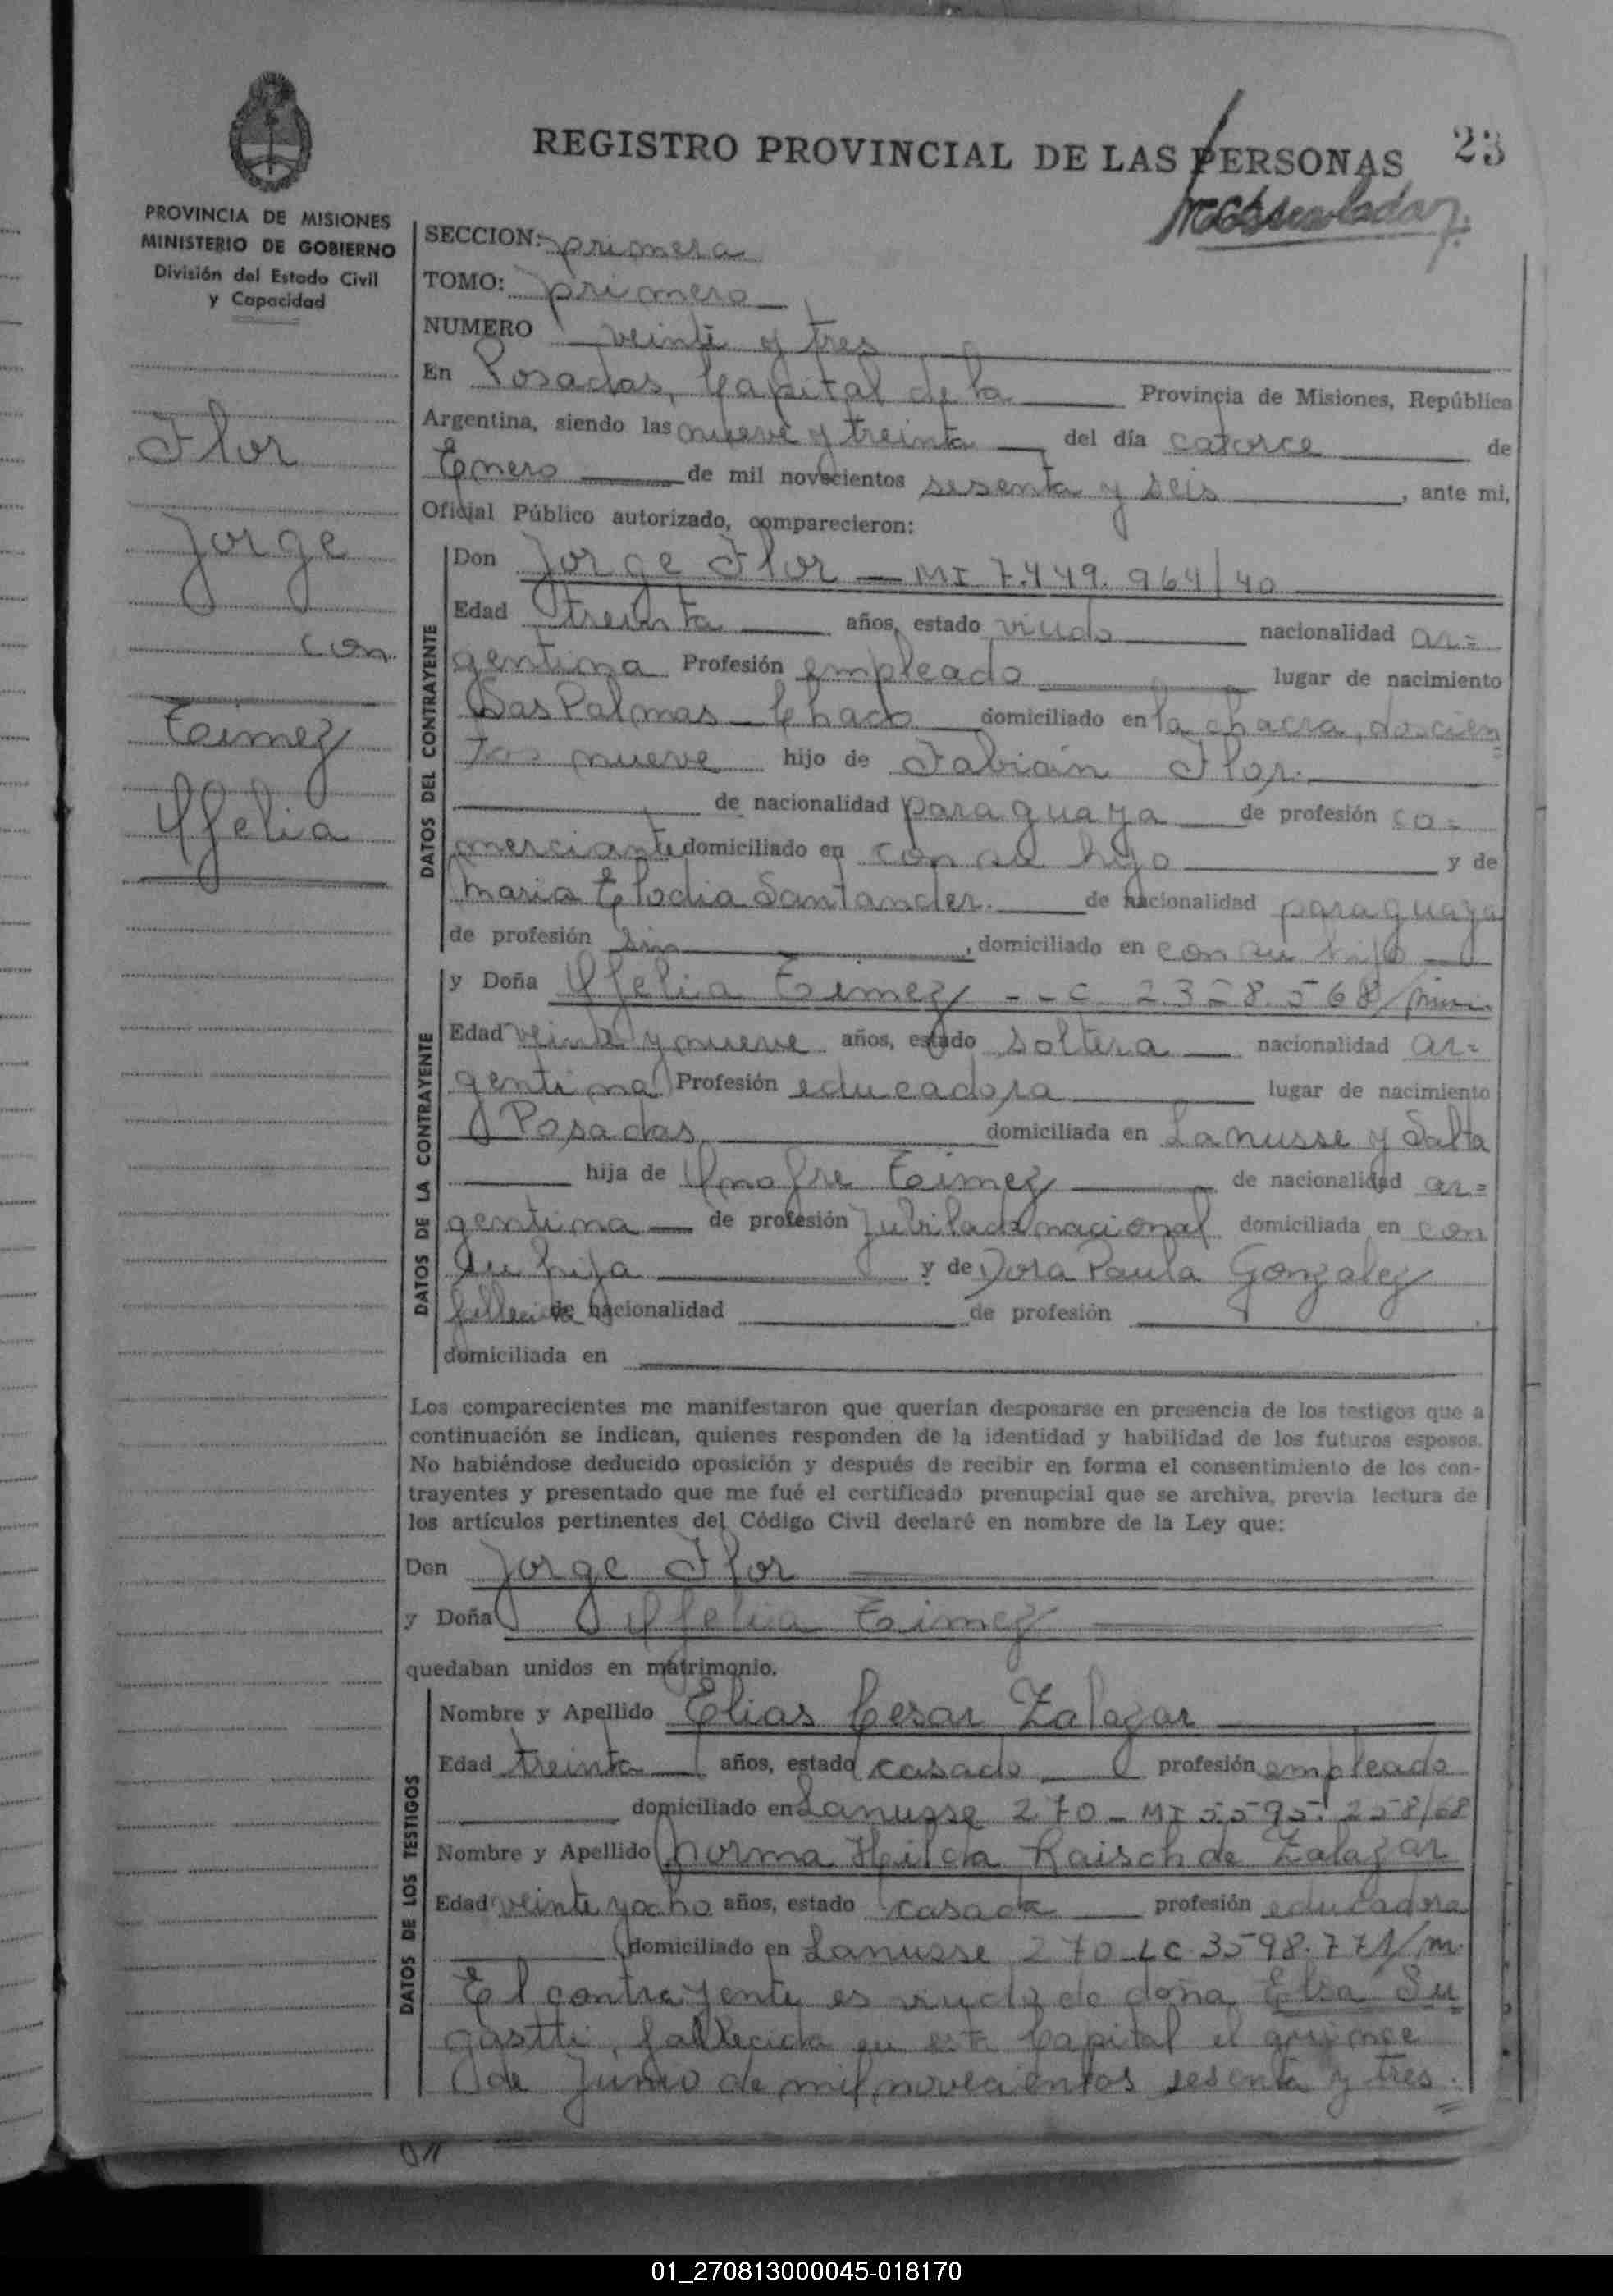 23
REGISTRO PROVINCIAL DE LAS PERSONAS
PROVINCIA DE MISIONES
MINISTERIO DE GOBIERNO
División del Estado Civil
y Capacidad
Flor
Jorge
con
Teimez
Ofelia
SECCION: primera
TOMO: primero
NUMERO veinte y tres
En Posadas, Capital de la Provincia de Misiones, República
Argentina, siendo las nueve y treinta del día catorce de
Enero de mil novecientos sesenta y seis, ante mi,
Oficial Público autorizado, comparecieron:
DATOS DEL CONTRAYENTE
Don Jorge Flor — MI 7.449.964/40
Edad treinta años, estado viudo nacionalidad ar=
gentina Profesión empleado lugar de nacimiento
Las Palmas - Chaco domiciliado en la chacra, doscien
tos nueve hijo de Fabián Flor.
de nacionalidad paraguaya de profesión co=
merciante domiciliado en con su hijo y de
Maria Elodia Santander. de nacionalidad paraguaya
de profesión sin, domiciliado en con su hijo
DATOS DE LA CONTRAYENTE
y Doña Ofelia Teimez - C. 2.328.568/
Edad veinte y nueve años, estado soltera nacionalidad ar=
gentina Profesión educadora lugar de nacimiento
Posadas domiciliada en Lanusse y Salta
hija de Onofre Teimez de nacionalidad ar=
gentina de profesión Jubilado nacional domiciliada en con
su hija y de Dora Paula Gonzalez
fallecida de nacionalidad de profesión
domiciliada en
Los comparecientes me manifestaron que querían desposarse en presencia de los testigos que a
continuación se indican, quienes responden de la identidad y habilidad de los futuros esposos.
No habiéndose deducido oposición y después de recibir en forma el consentimiento de los con-
trayentes y presentado que me fué el certificado prenupcial que se archiva, previa lectura de
los artículos pertinentes del Código Civil declaré en nombre de la Ley que:
Don Jorge Flor
y Doña Ofelia Teimez
quedaban unidos en matrimonio.
DATOS DE LOS TESTIGOS
Nombre y Apellido Elias Cesar Zalazar
Edad treinta años, estado casado profesión empleado
domiciliado en Lanusse 270 - MI 5595.258/68
Nombre y Apellido Norma Hilda Raisch de Zalazar
Edad veinte y ocho años, estado casada profesión educadora
domiciliado en Lanusse 270 LC 3598.771/m.
El contrayente es viudo de doña Elsa Su
gastti, fallecida en esta Capital el quince
de Junio de mil novecientos sesenta y tres.
01_270813000045-018170